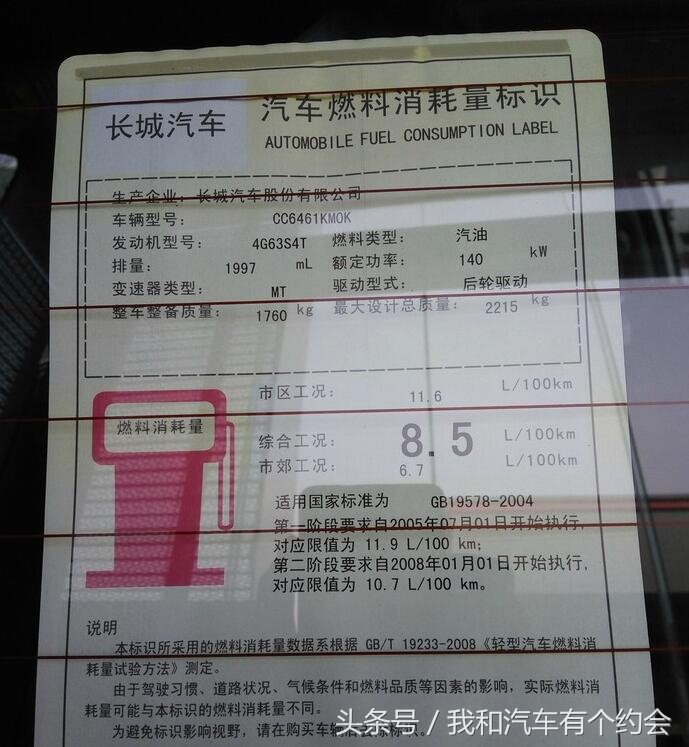 长城汽车
汽车燃料消耗量标识
AUTOMOBILE FUEL CONSUMPTION LABEL
生产企业: 长城汽车股份有限公司
车辆型号: CC6461KM0K
发动机型号: 4G63S4T 燃料类型: 汽油
排量: 1997 mL 额定功率: 140 kW
变速器类型: MT 驱动型式: 后轮驱动
整车整备质量: 1760 kg 最大设计总质量: 2215 kg
市区工况: 11.6 L/100km
燃料消耗量
综合工况: 8.5 L/100km
市郊工况: 6.7 L/100km
适用国家标准为 GB19578-2004
第一阶段要求自2005年07月01日开始执行,
对应限值为 11.9 L/100 km;
第二阶段要求自2008年01月01日开始执行,
对应限值为 10.7 L/100 km。
说明
本标识所采用的燃料消耗量数据系根据 GB/T 19233-2008《轻型汽车燃料消
耗量试验方法》测定。
由于驾驶习惯、道路状况、气候条件和燃料品质等因素的影响, 实际燃料消
耗量可能与本标识的燃料消耗量不同。
为避免标识影响视野, 请在购买车辆后去除标识。
头条号 / 我和汽车有个约会